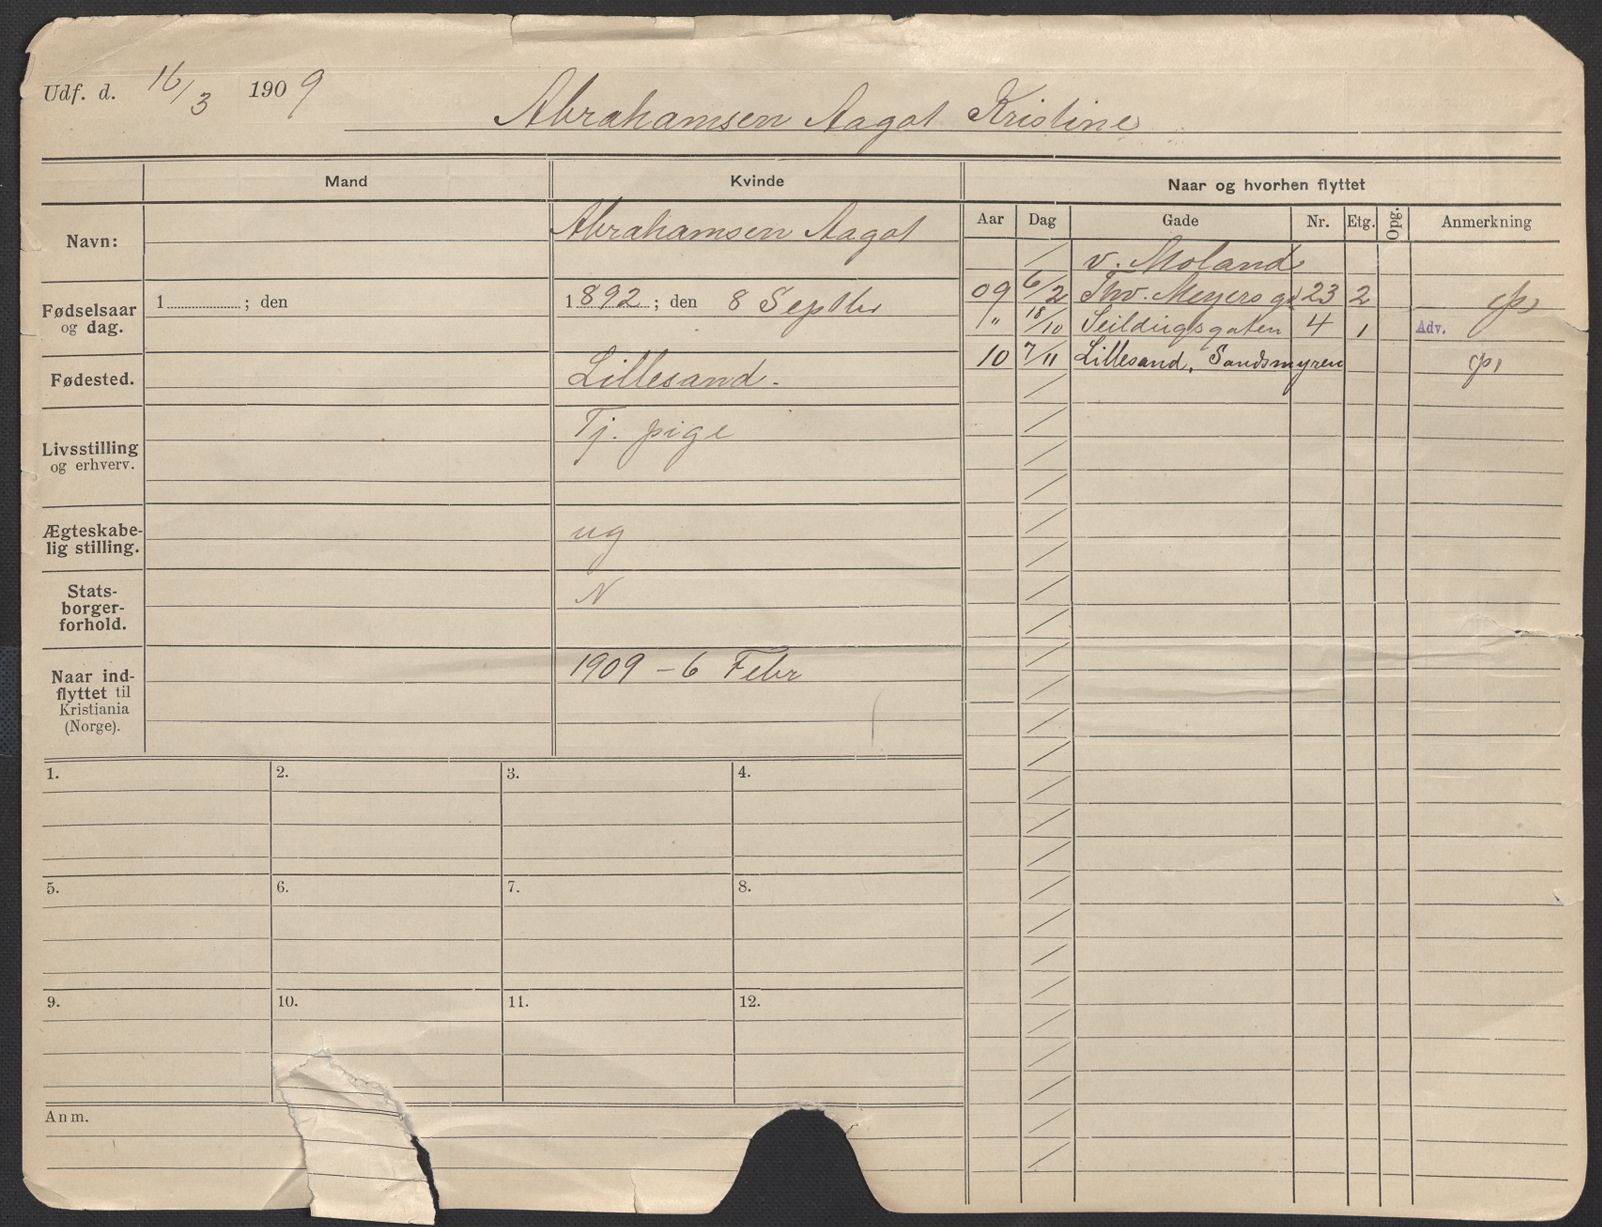 Udf. d. 16/3 1909
Abrahamsen Aagot Kristine
Mand Kvinde Naar og hvorhen flyttet
Aar Dag Gade Nr. Etg. Opg. Anmerkning
Navn: Abrahamsen Aagot
Fødselsaar og dag. 1 ; den 1892 ; den 8 Septbr
Fødested. Lillesand.
Livsstilling og erhverv. Tj. pige
Ægteskabe-
lig stilling. ug
Stats-
borger-
forhold. N
Naar ind-
flyttet til
Kristiania
(Norge). 1909 - 6 Febr
/ v. Moland
09 6/2 Thv. Meyers gd 23 2
" 18/10 Seildugsgaten 4 1 Adv.
10 7/11 Lillesand, Sandsmyren
1. 2. 3. 4.
5. 6. 7. 8.
9. 10. 11. 12.
Anm.